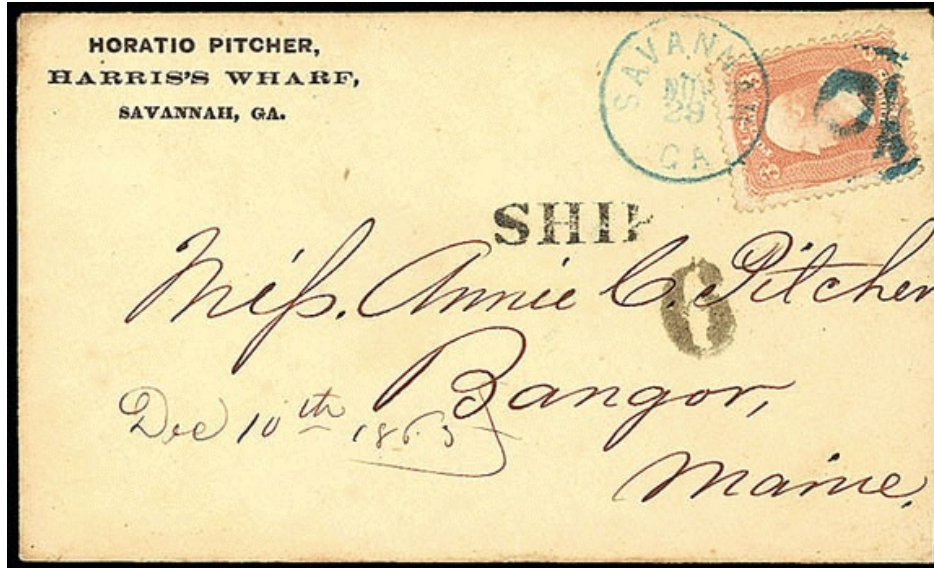 HORATIO PITCHER,
HARRIS'S WHARF,
SAVANNAH, GA.
SAVANNAH
NOV
29
GA
3
3
SHIP
6
Miss. Annie C. Pitcher
Bangor,
Maine,
Dec 10th 1865